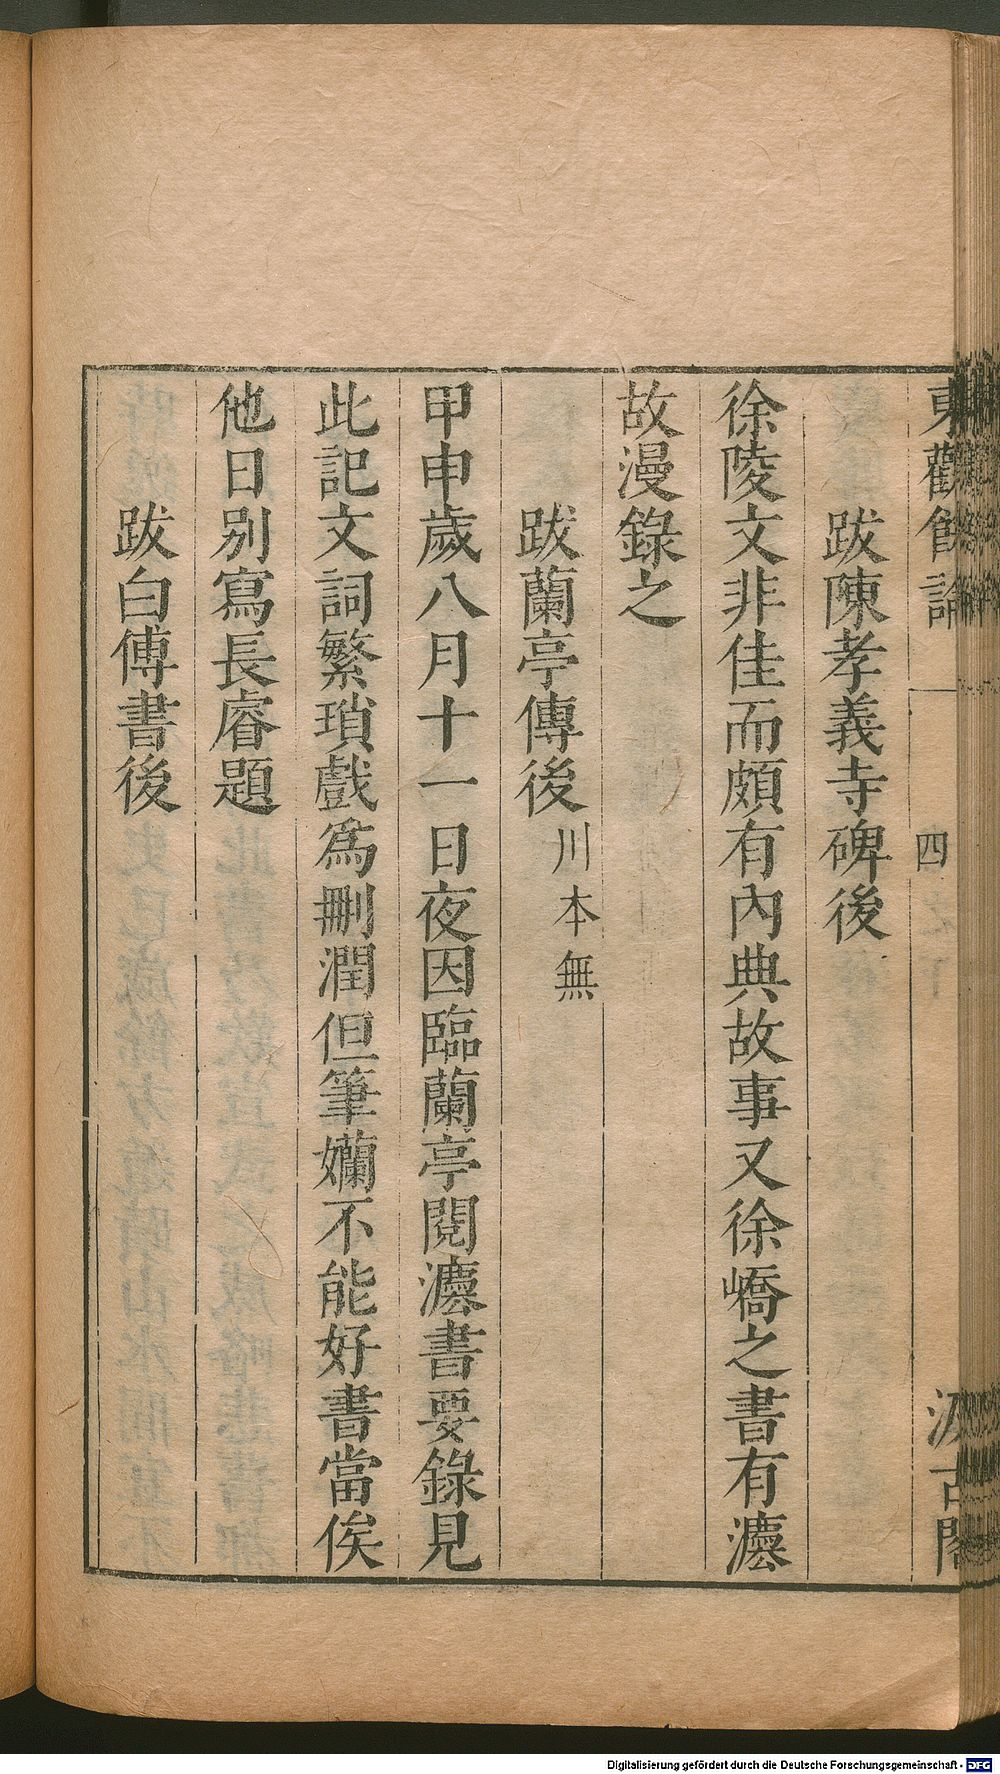 東觀餘論
四
汲古閣
跋陳孝義寺碑後
徐陵文非佳而頗有內典故事又徐嶠之書有灋
故漫錄之
跋蘭亭傳後川本無
甲申歲八月十一日夜因臨蘭亭閱灋書要錄見
此記文詞繁瑣戲為刪潤但筆嬾不能好書當俟
他日別寫長睿題
跋白傅書後
Digitalisierung gefördert durch die Deutsche Forschungsgemeinschaft - DFG